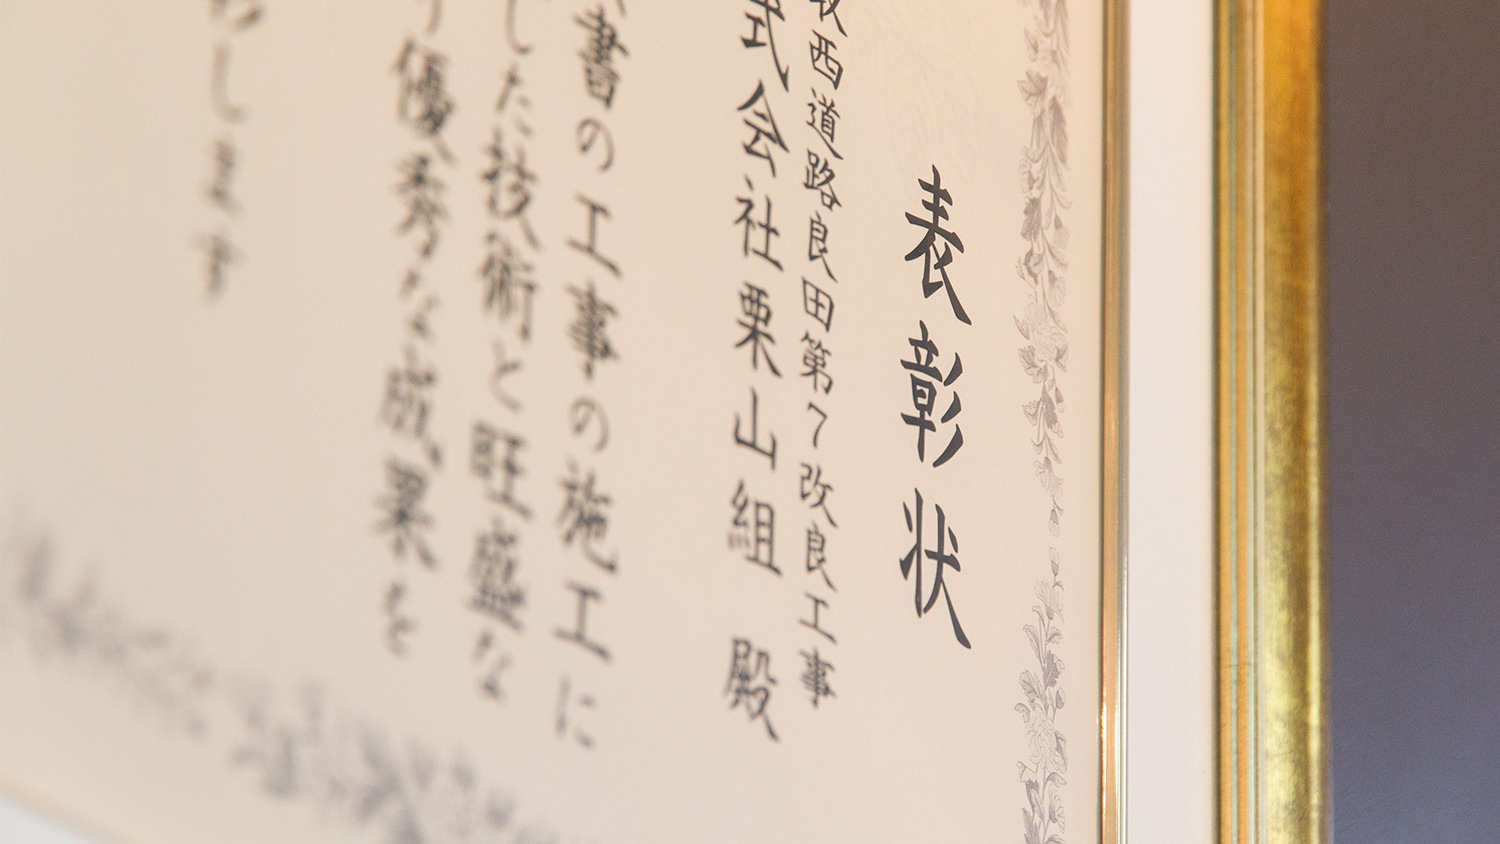 表彰状
取西道路良田第7改良工事
式会社栗山組 殿
書の工事の施工に
した技術と旺盛な
り優秀な成果を
します